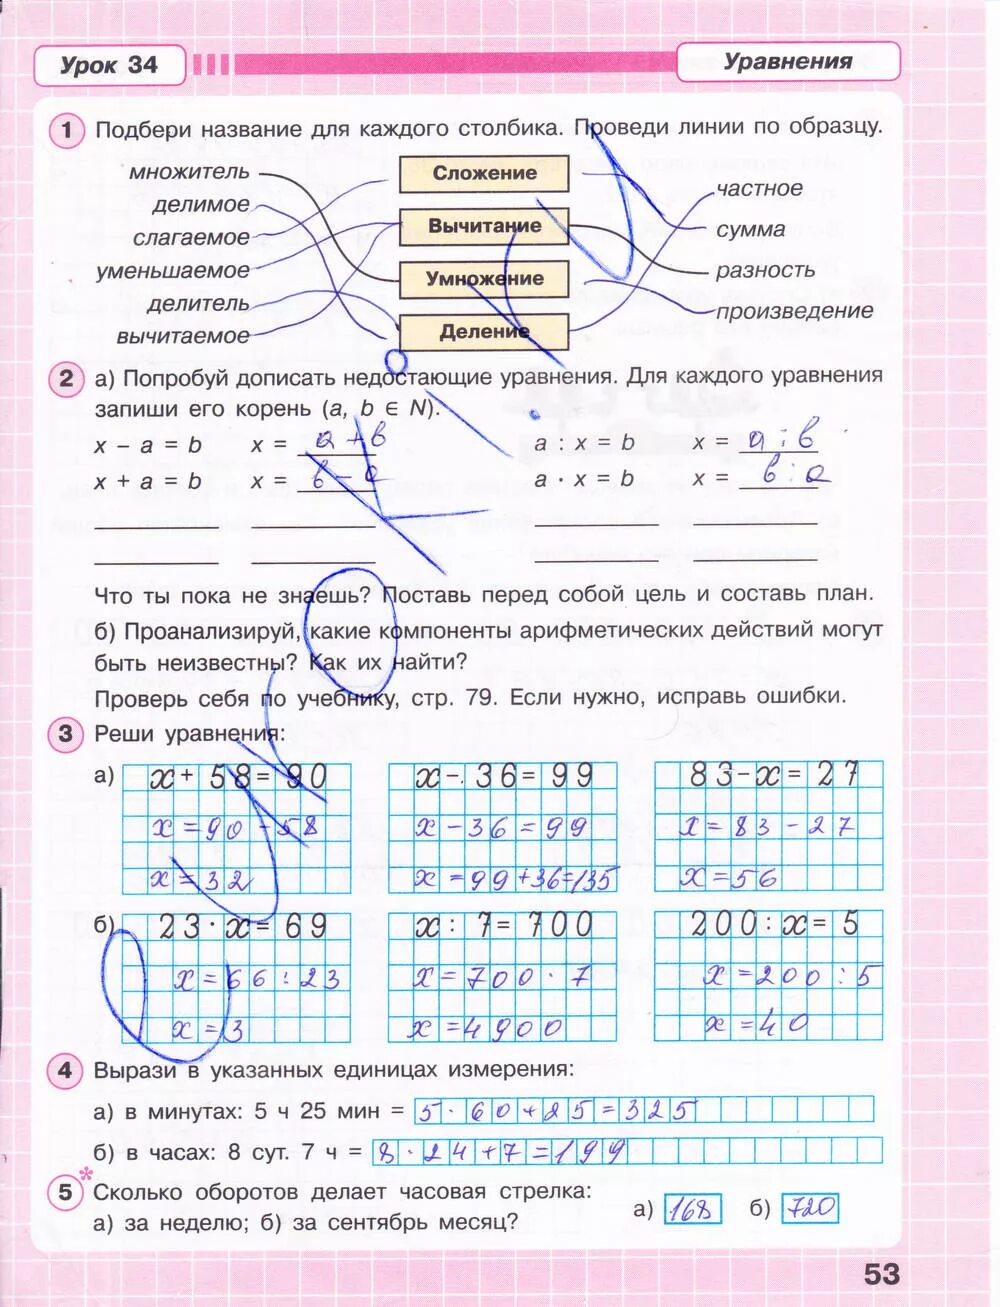 Урок 34
Уравнения
1 Подбери название для каждого столбика. Проведи линии по образцу.
множитель
делимое
слагаемое
уменьшаемое
делитель
вычитаемое
Сложение
Вычитание
Умножение
Деление
частное
сумма
разность
произведение
2 а) Попробуй дописать недостающие уравнения. Для каждого уравнения
запиши его корень (a, b ∈ N).
x − a = b x = a + b a : x = b x = a : b
x + a = b x = b − a a · x = b x = b : a
Что ты пока не знаешь? Поставь перед собой цель и составь план.
б) Проанализируй, какие компоненты арифметических действий могут
быть неизвестны? Как их найти?
Проверь себя по учебнику, стр. 79. Если нужно, исправь ошибки.
3 Реши уравнения:
а) x + 58 = 90 x − 36 = 99 83 − x = 27
x = 90 − 58 x − 36 = 99 x = 83 − 27
x = 32 x = 99 + 36 = 135 x = 56
б) 23 · x = 69 x : 7 = 700 200 : x = 5
x = 66 : 23 x = 700 · 7 x = 200 : 5
x = 3 x = 4900 x = 40
4 Вырази в указанных единицах измерения:
а) в минутах: 5 ч 25 мин = 5 · 60 + 25 = 325
б) в часах: 8 сут. 7 ч = 8 · 24 + 7 = 199
5* Сколько оборотов делает часовая стрелка: а) 168 б) 720
а) за неделю; б) за сентябрь месяц?
53